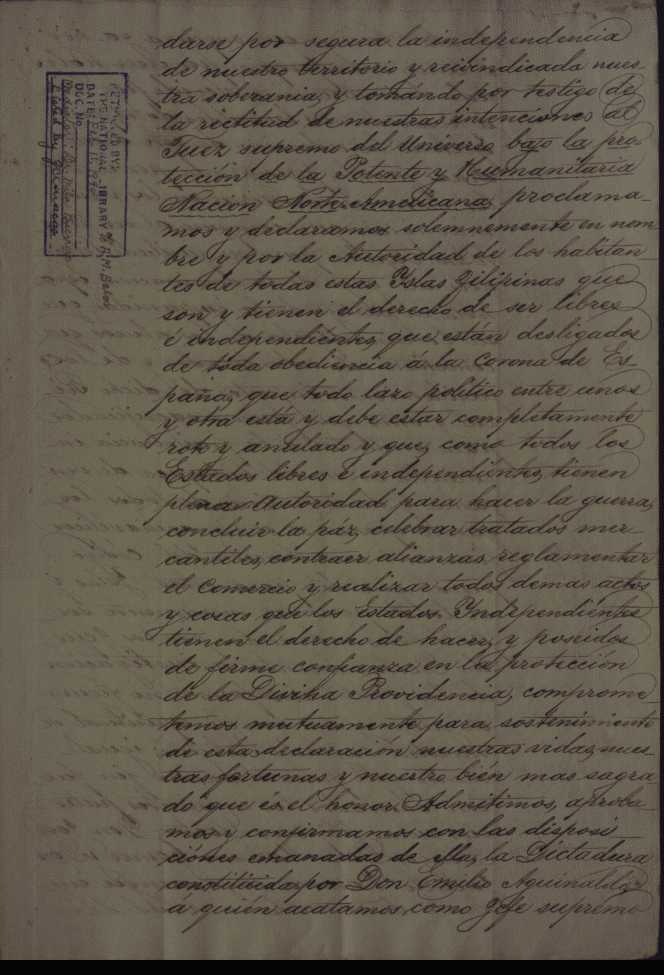 darse por segura la independencia
de nuestro territorio y reivindicada nues-
tra soberania, y tomando por testigo de
la rectitud de nuestras intenciones al
Juez supremo del Universo bajo la pro-
tección de la Potente y Humanitaria
Nación Norte-Americana, proclama-
mos y declaramos solemnemente en nom
bre y por la Autoridad de los habitan
tes de todas estas Yslas Filipinas que
son y tienen el derecho de ser libres
é independientes, que están desligados
de toda obediencia á la Corona de Es-
paña, que todo lazo político entre unos
y otra está y debe estar completamente
roto y anulado y que, como todos los
Estados libres é independientes, tienen
plena Autoridad para hacer la guerra,
concluir la páz, celebrar tratados mer-
cantiles, contraer alianzas, reglamentar
el Comercio y realizar todos demas actos
y cosas que los Estados Yndependientes
tienen el derecho de hacer, y poseidos
de firme confianza en la protección
de la Divina Providencia, comprome
temos mutuamente para sostenimiento
de esta declaración nuestras vidas, nues-
tras fortunas y nuestro bién mas sagra
do que és el honor. Admitimos, aproba-
mos y confirmamos con las disposi
ciónes emanadas de ella, la Dictadura
constituida por Don Emilio Aguinaldo,
á quién acatamos como Gefe supremo
THE NATIONAL LIBRARY
DATE:
DOC. No.